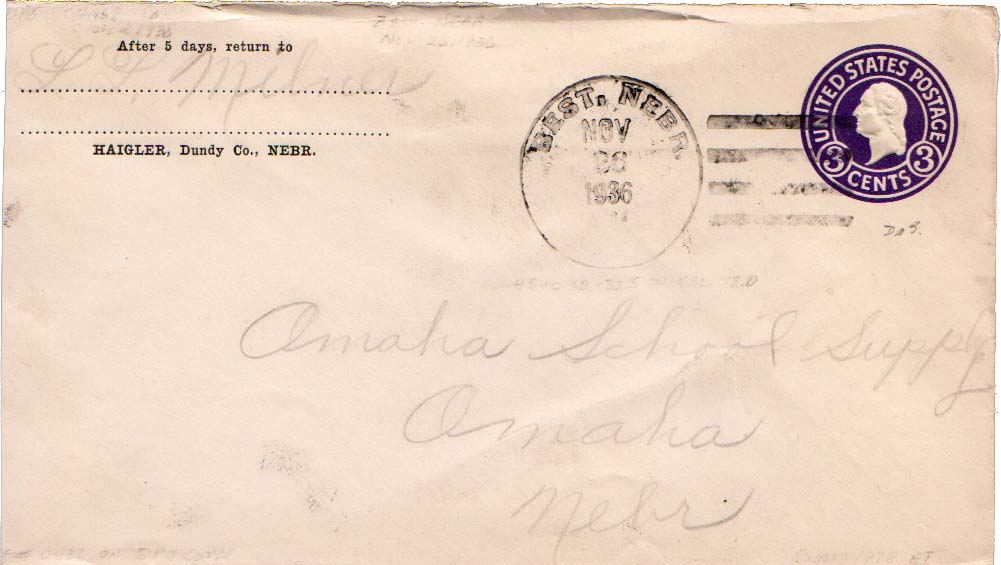 After 5 days, return to
L L Milner
HAIGLER, Dundy Co., NEBR.
BEST, NEBR.
NOV
1936
UNITED STATES POSTAGE
3 CENTS 3
Omaha School Supply
Omaha
Nebr